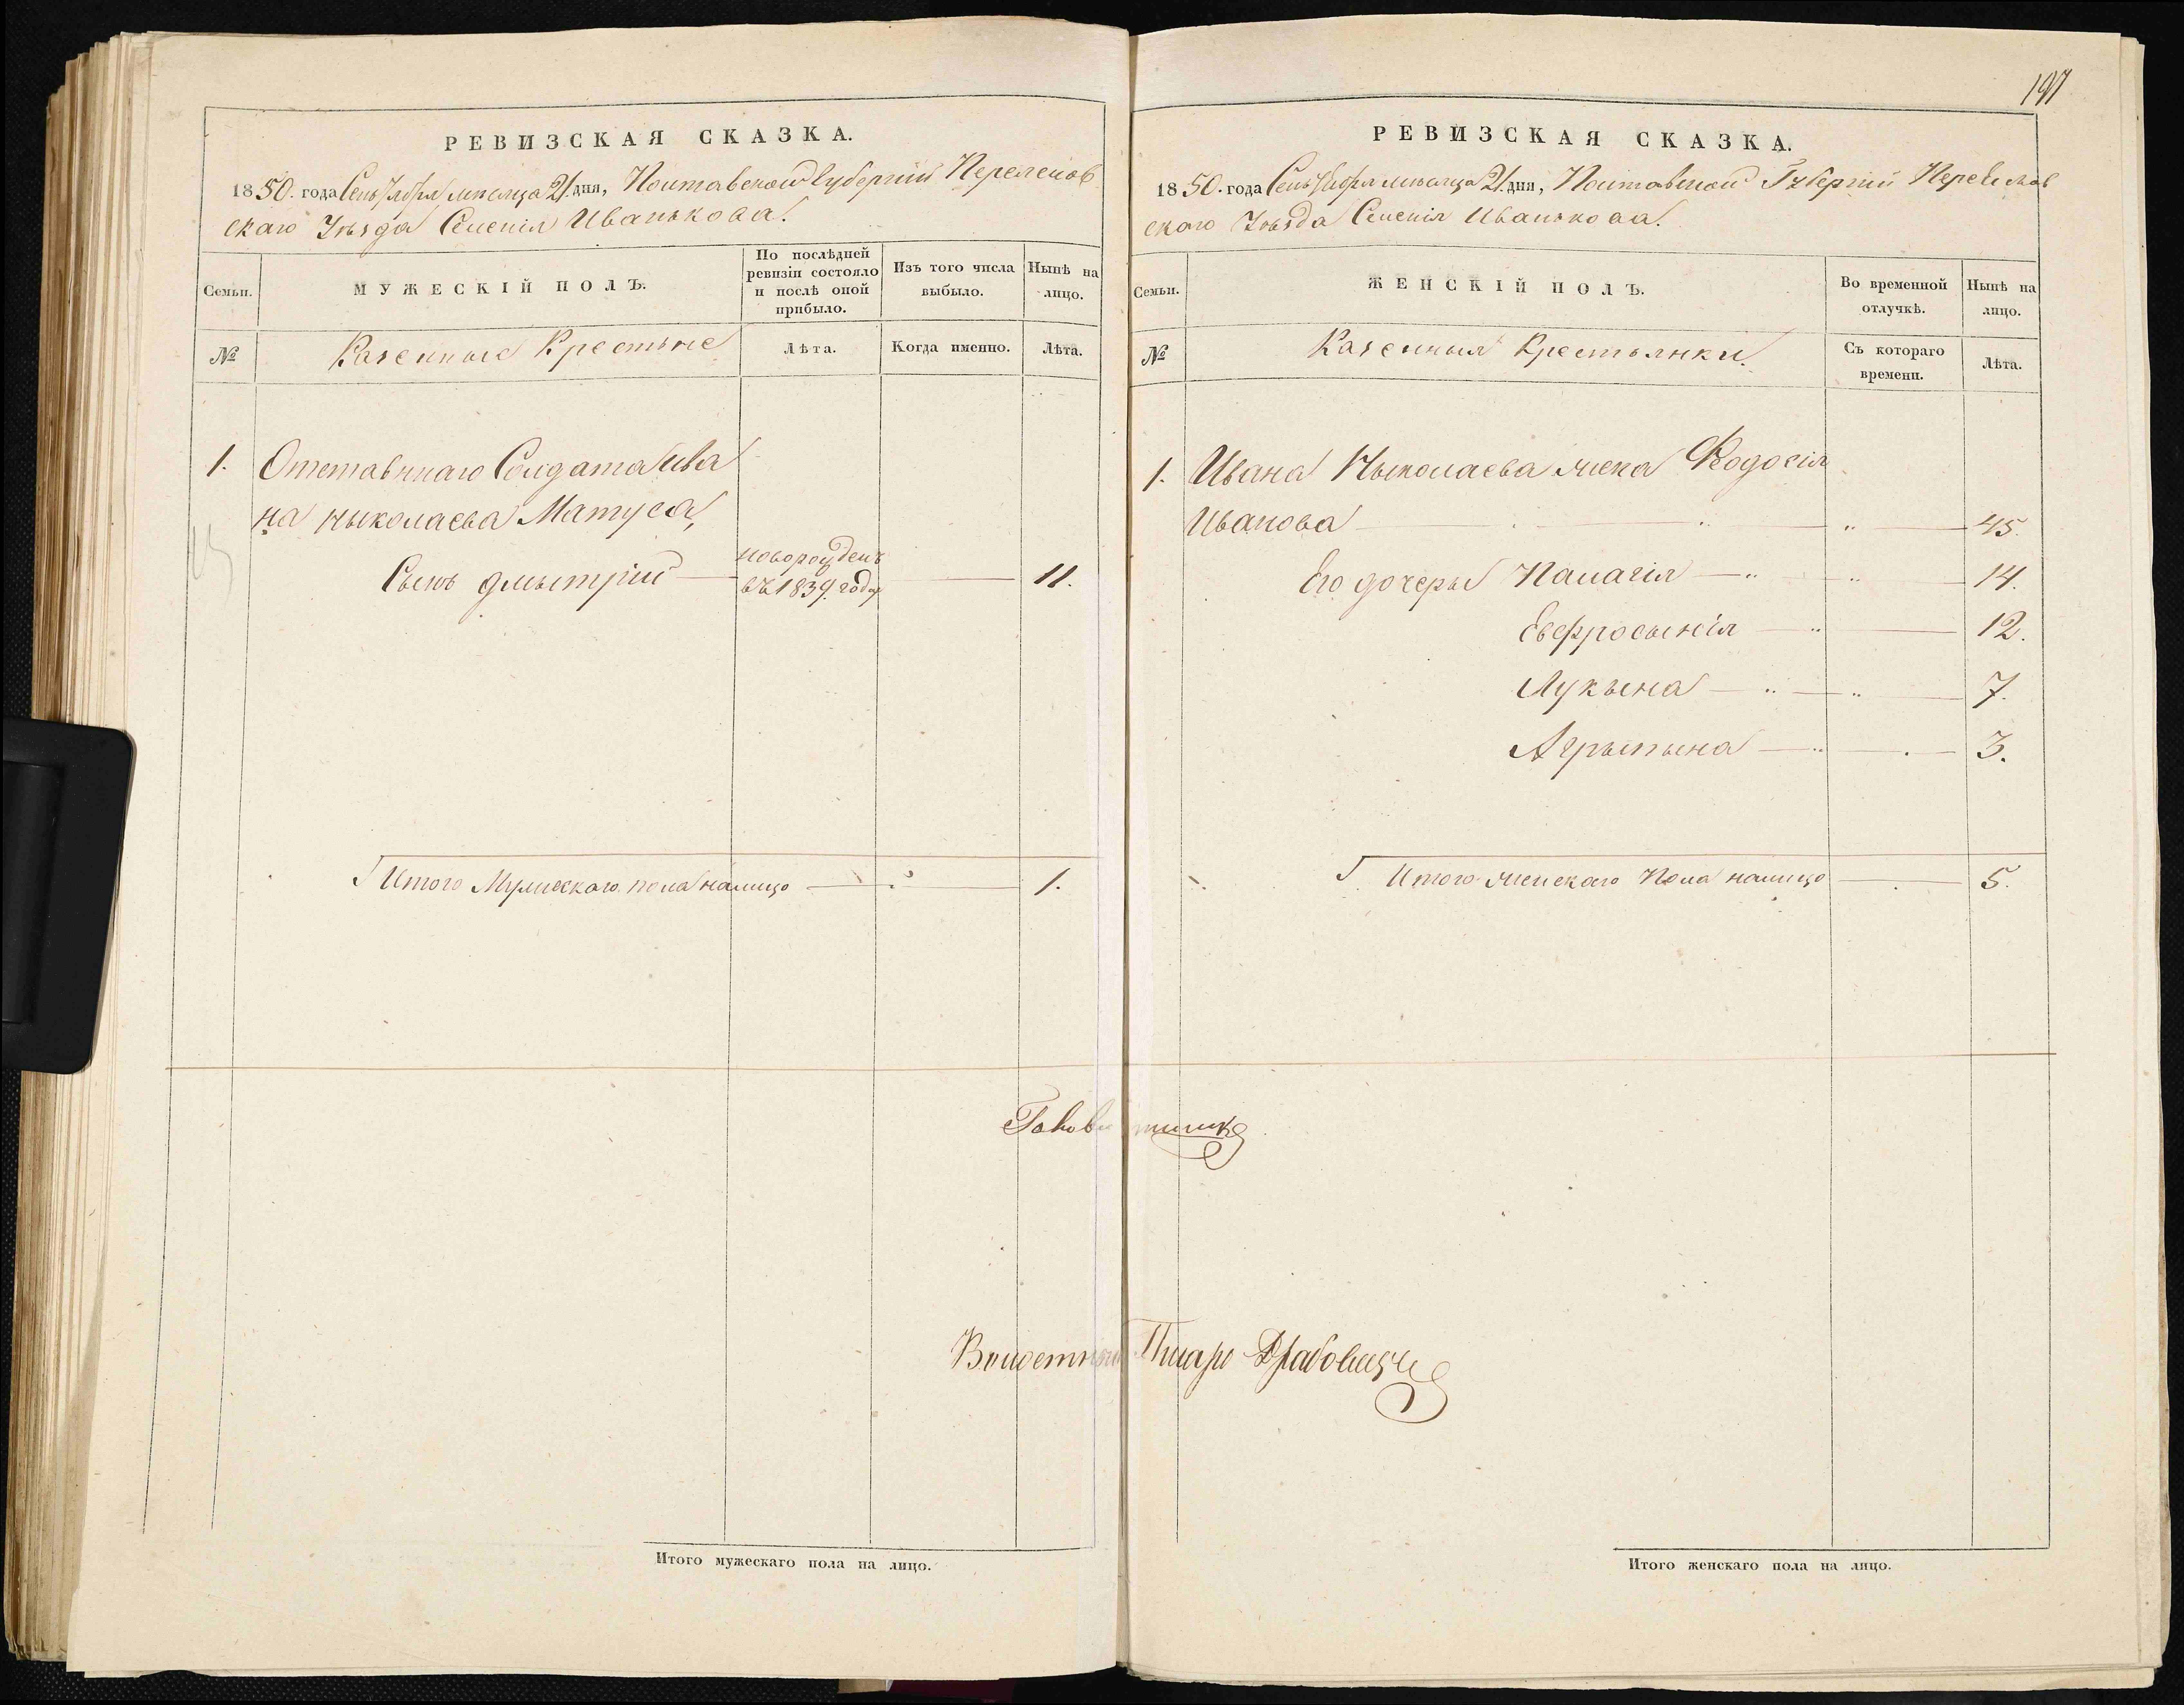 РЕВИЗСКАЯ СКАЗКА.
1850. года Сентября месяца 21. дня, Полтавской Губернии Переяслов
скаго Уезда Селения Иванькова.
Семьи.
МУЖЕСКІЙ ПОЛЪ.
По послѣдней ревизіи состояло и послѣ оной прибыло.
Изъ того числа выбыло.
Нынѣ на лицо.
№
Казенные Крестьне
Лѣта.
Когда именно.
Лѣта.
1. Отставннаго Солдата Ива
на Ныколаева Матуса,
Сынъ Дмытрій новорожденъ въ 1839. году 11.
Итого Мужескаго пола налицо 1.
Итого мужескаго пола на лицо.
197
РЕВИЗСКАЯ СКАЗКА.
1850. года Сентября месяца 21. дня, Полтавской Губерніи Переяслов
скаго Уезда Селенія Иванькова.
Семьи.
ЖЕНСКІЙ ПОЛЪ.
Во временной отлучкѣ.
Нынѣ на лицо.
№
Казенныя Крестьянки.
Съ котораго времени.
Лѣта.
1. Ивана Ныколаева жена Феодосія
Иванова 45.
Его дочеры Палагія 14.
Евфросынія 12.
Лукына 7.
Агрыпына 3.
Итого женскаго Пола налицо 5.
Волостный Писарь
Итого женскаго пола на лицо.